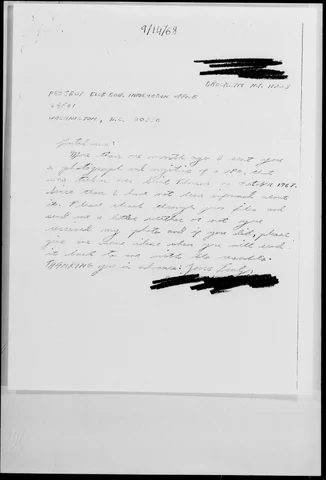 9/14/68
BROOKLYN N.Y.
WASHINGTON, D.C.
Gentlemen:
More than one month ago I sent you
a photograph and negative of a UFO, that
was taken on 1967.
Since then I have not been informed about
it. Please check through your files and
send me a letter whether or not you
received my photo and if you did, please
give me some idea when you will send
it back to me with the results.
THANKING you in advance: Yours Truly,